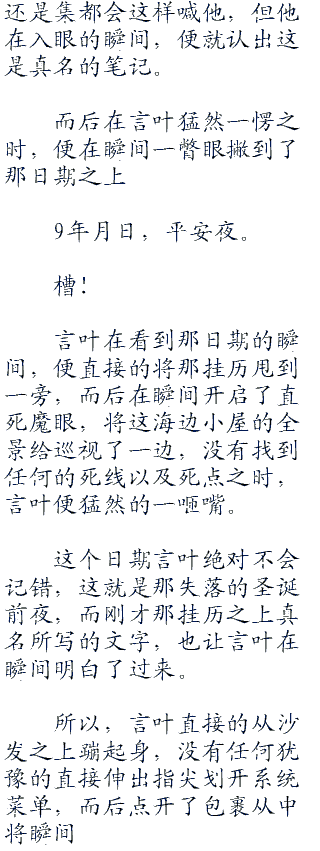 还是集都会这样喊他，但他
在入眼的瞬间，便就认出这
是真名的笔记。
而后在言叶猛然一愣之
时，便在瞬间一瞥眼撇到了
那日期之上
9年月日，平安夜。
槽！
言叶在看到那日期的瞬
间，便直接的将那挂历甩到
一旁，而后在瞬间开启了直
死魔眼，将这海边小屋的全
景给巡视了一边，没有找到
任何的死线以及死点之时，
言叶便猛然的一咂嘴。
这个日期言叶绝对不会
记错，这就是那失落的圣诞
前夜，而刚才那挂历之上真
名所写的文字，也让言叶在
瞬间明白了过来。
所以，言叶直接的从沙
发之上蹦起身，没有任何犹
豫的直接伸出指尖划开系统
菜单，而后点开了包裹从中
将瞬间